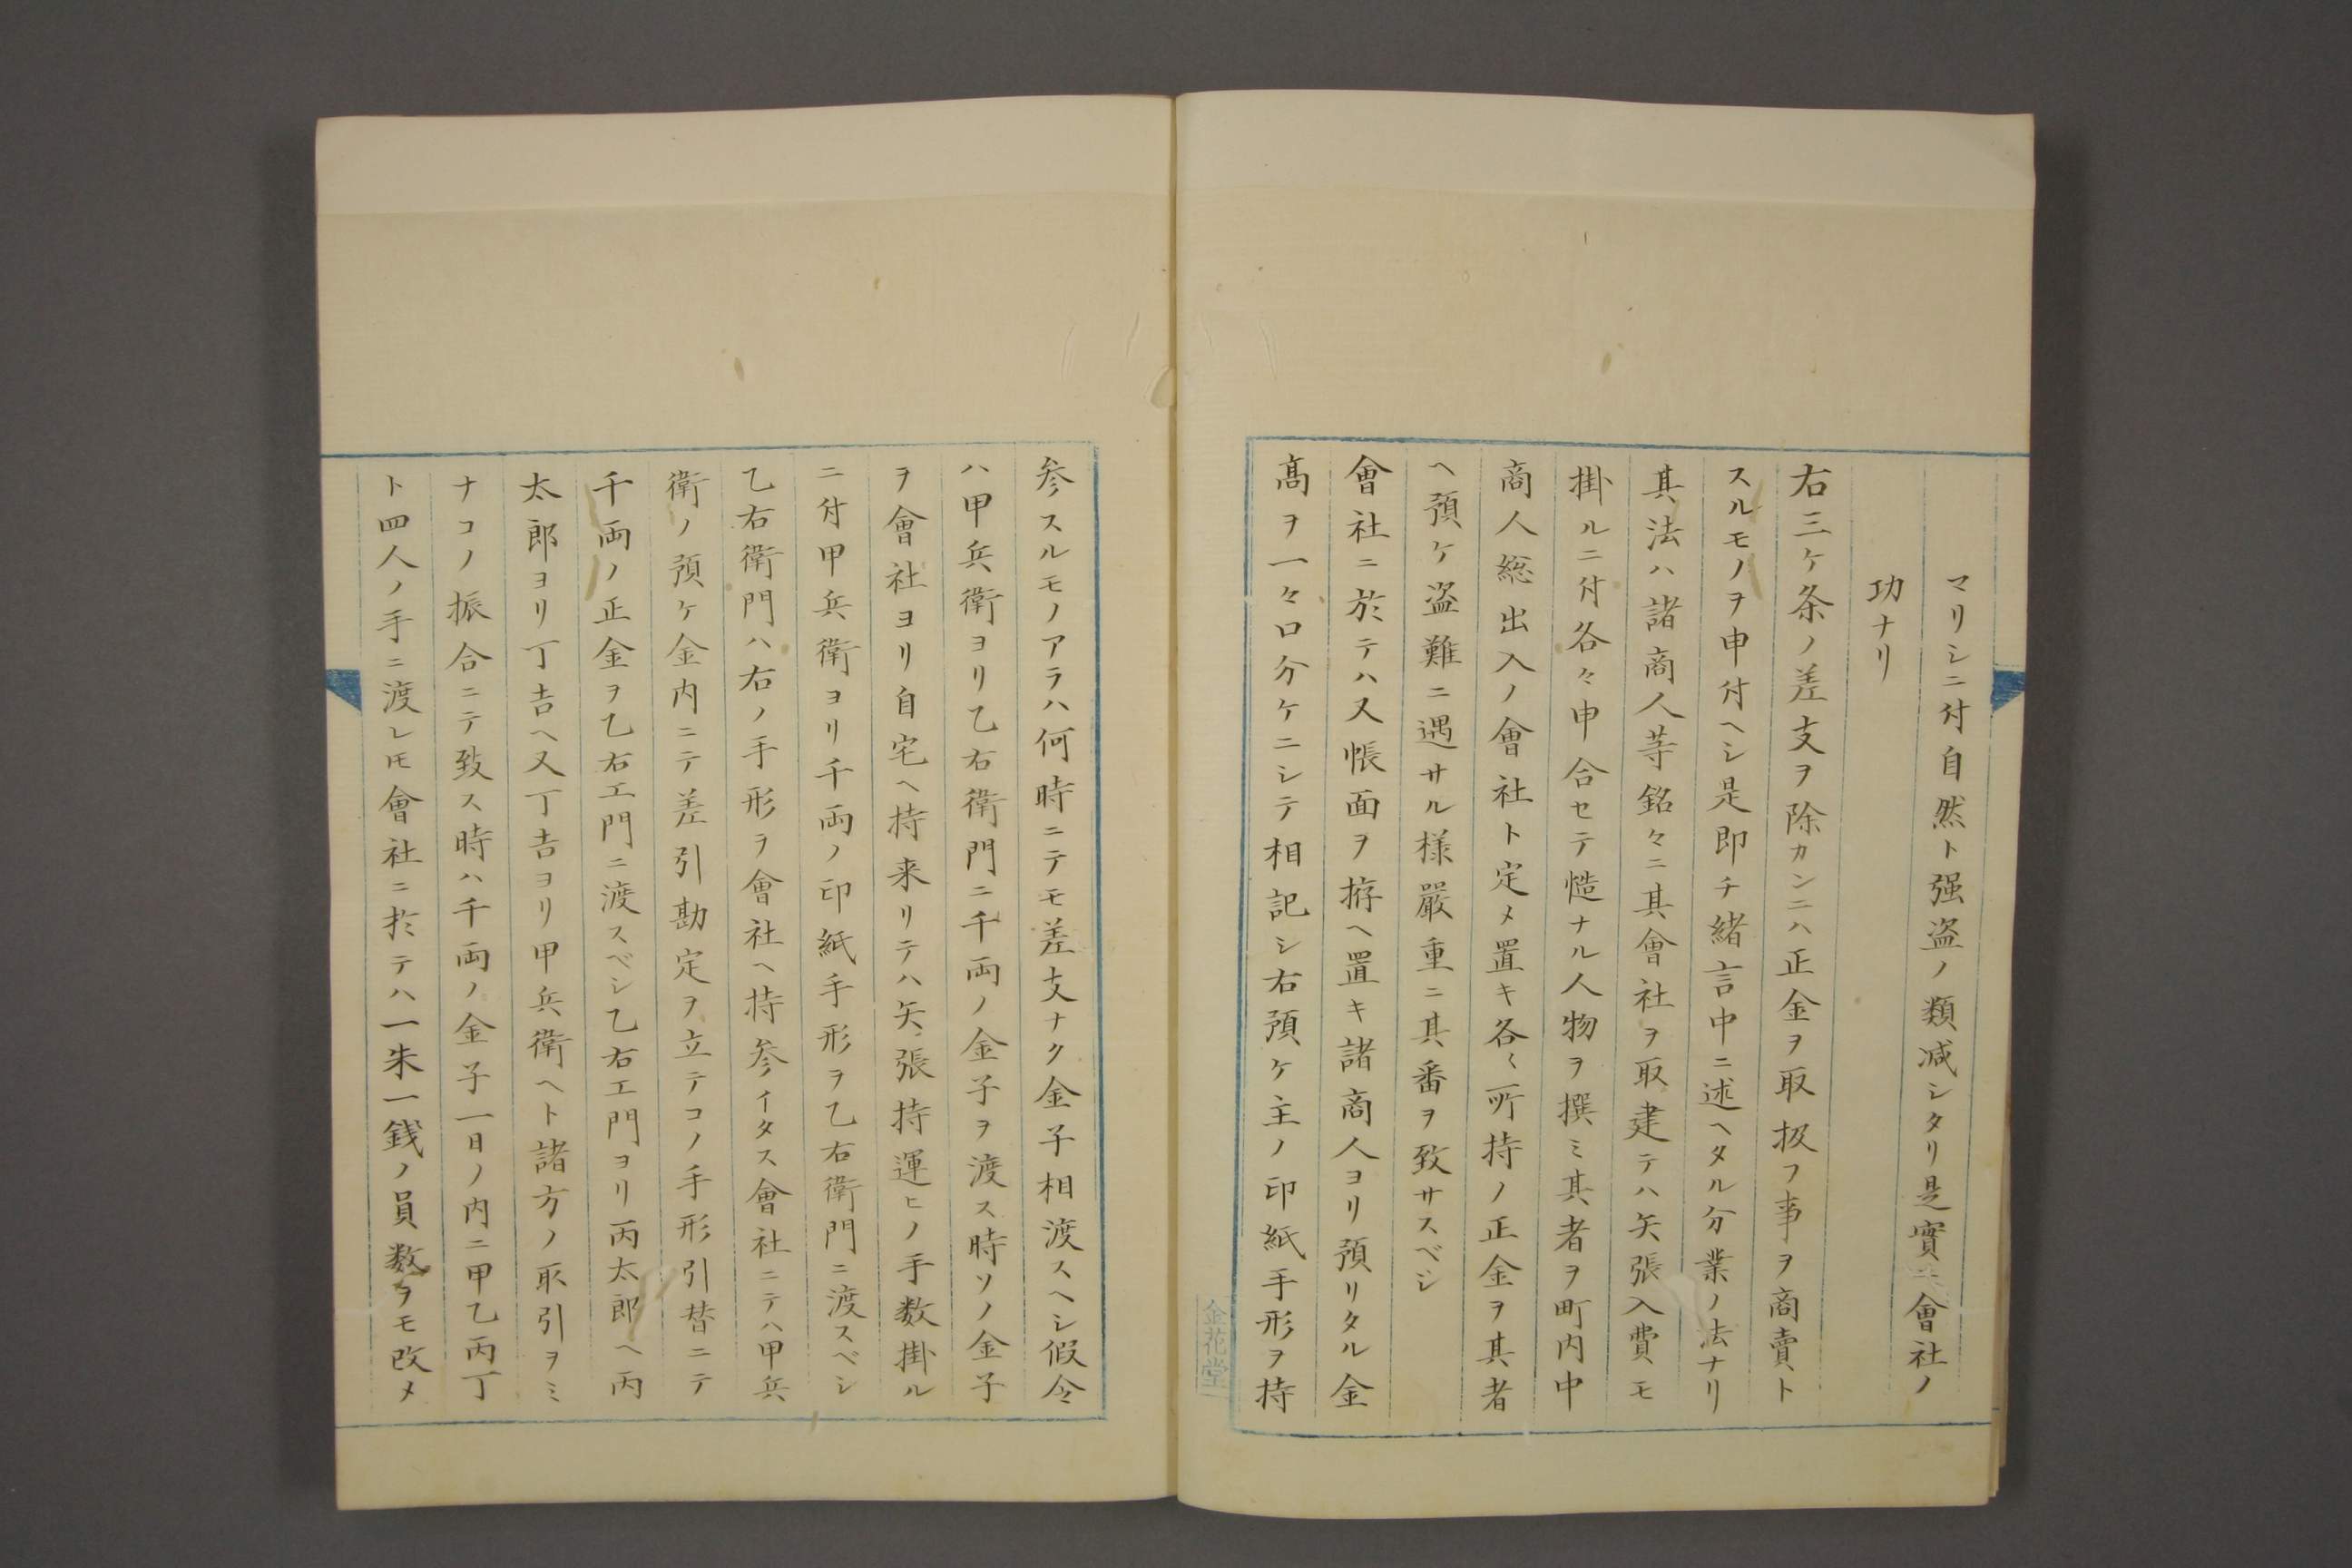 マリシニ付自然ト强盗ノ類减シタリ是實ニ會社ノ
功ナリ
右三ケ条ノ差支ヲ除カンニハ正金ヲ取扱フ事ヲ商賣ト
スルモノヲ申付ヘシ是即チ緒言中ニ述ヘタル分業ノ法ナリ
其法ハ諸商人等銘々ニ其會社ヲ取建テハ矢張入費モ
掛ルニ付各々申合セテ慥ナル人物ヲ撰ミ其者ヲ町内中
商人総出入ノ會社ト定メ置キ各〻所持ノ正金ヲ其者
ヘ預ケ盗難ニ遇サル様嚴重ニ其番ヲ致サスベシ
會社ニ於テハ又帳面ヲ拵ヘ置キ諸商人ヨリ預リタル金
髙ヲ一々口分ケニシテ相記シ右預ケ主ノ印紙手形ヲ持
金花堂
参スルモノアラハ何時ニテモ差支ナク金子相渡スヘシ假令
ハ甲兵衛ヨリ乙右衛門ニ千両ノ金子ヲ渡ス時ソノ金子
ヲ會社ヨリ自宅ヘ持来リテハ矢張持運ヒノ手数掛ル
ニ付甲兵衛ヨリ千両ノ印紙手形ヲ乙右衛門ニ渡スベシ
乙右衛門ハ右ノ手形ヲ會社ヘ持参イタス會社ニテハ甲兵
衛ノ預ケ金内ニテ差引勘定ヲ立テコノ手形引替ニテ
千両ノ正金ヲ乙右エ門ニ渡スベシ乙右エ門ヨリ丙太郎ヘ丙
太郎ヨリ丁吉ヘ又丁吉ヨリ甲兵衛ヘト諸方ノ取引ヲミ
ナコノ振合ニテ致ス時ハ千両ノ金子一日ノ内ニ甲乙丙丁
ト四人ノ手ニ渡レ𪜈會社ニ於テハ一朱一銭ノ員数ヲモ改メ